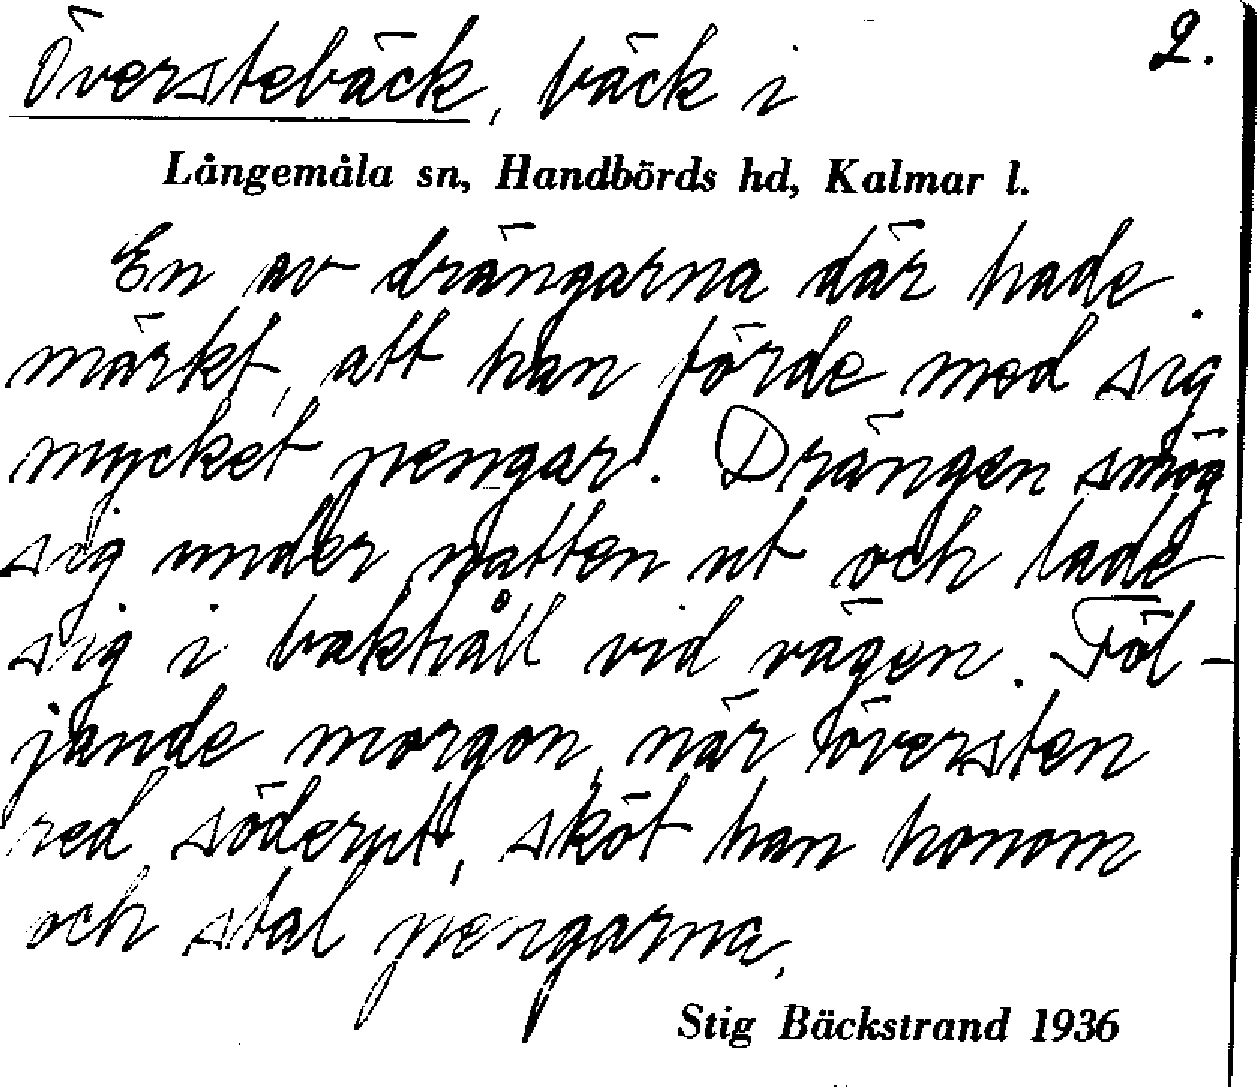 Överstebäck, bäck i 2.
Långemåla sn, Handbörds hd, Kalmar l.
En av drängarna där hade
märkt, att han förde med sig
mycket pengar. Drängen smög
sig under natten ut och lade
sig i bakhåll vid vägen. Föl-
jande morgon, när översten
red söderut, sköt han honom
och stal pengarna.
Stig Bäckstrand 1936